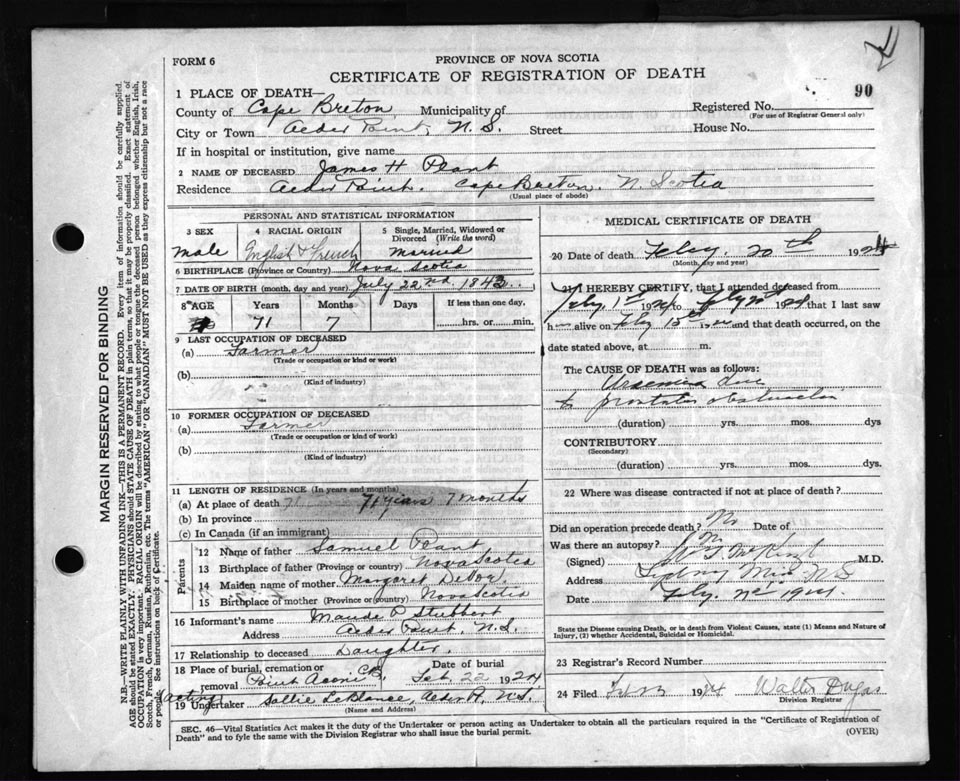 FORM 6
PROVINCE OF NOVA SCOTIA
CERTIFICATE OF REGISTRATION OF DEATH
90
1 PLACE OF DEATH—
County of Cape Breton Municipality of
Registered No.
(For use of Registrar General only)
City or Town Alder Point, N.S. Street House No.
If in hospital or institution, give name
2 NAME OF DECEASED James H Plant
Residence Alder Point. Cape Breton. N. Scotia
(Usual place of abode)
PERSONAL AND STATISTICAL INFORMATION
3 SEX 4 RACIAL ORIGIN 5 Single, Married, Widowed or Divorced (Write the word)
Male English & French Married
6 BIRTHPLACE (Province or Country) Nova Scotia
7 DATE OF BIRTH (month, day and year) July 22nd, 1842
8 AGE Years Months Days If less than one day,
71 7 hrs. or min.
9 LAST OCCUPATION OF DECEASED
(a) Farmer
(Trade or occupation or kind or work)
(b)
(Kind of industry)
10 FORMER OCCUPATION OF DECEASED
(a) Farmer
(Trade or occupation or kind of work)
(b)
(Kind of industry)
11 LENGTH OF RESIDENCE (In years and months)
(a) At place of death 71 71 years 7 months
(b) In province
(c) In Canada (if an immigrant)
Parents
12 Name of father Samuel Plant
13 Birthplace of father (Province or country) Nova Scotia
14 Maiden name of mother Margaret
15 Birthplace of mother (Province or country) Nova Scotia
16 Informant's name Maude P Stubbert
Address Alder Point, N.S.
17 Relationship to deceased Daughter.
18 Place of burial, cremation or removal Point Aconi C.B. Date of burial Feb. 22 1924
(acting)
19 Undertaker Sallie LeBlance, Alder P. N.S.
(Name and Address)
MEDICAL CERTIFICATE OF DEATH
20 Date of death Feby. 20th 1924
(Month, day and year)
21 I HEREBY CERTIFY, that I attended deceased from
Feby 1st 1924 to Feby 1924 that I last saw
h alive on Feby 15th and that death occurred, on the
date stated above, at m.
The CAUSE OF DEATH was as follows:
Uraemia due
to prostatic obstruction
(duration) yrs. mos. dys
CONTRIBUTORY
(Secondary)
(duration) yrs. mos. dys.
22 Where was disease contracted if not at place of death?
Did an operation precede death? No Date of
Was there an autopsy? No
(Signed) M.D.
Address Sydney Mines N.S
Date Feby.
State the Disease causing Death, or in death from Violent Causes, state (1) Means and Nature of Injury, (2) whether Accidental, Suicidal or Homicidal.
23 Registrar's Record Number
24 Filed 1924 Walter Dugas
Division Registrar
SEC. 46—Vital Statistics Act makes it the duty of the Undertaker or person acting as Undertaker to obtain all the particulars required in the "Certificate of Registration of
Death" and to fyle the same with the Division Registrar who shall issue the burial permit.
(OVER)
MARGIN RESERVED FOR BINDING
N.B.—WRITE PLAINLY WITH UNFADING INK—THIS IS A PERMANENT RECORD. Every item of information should be carefully supplied.
AGE should be stated EXACTLY. PHYSICIANS should STATE CAUSE OF DEATH in plain terms, so that it may be properly classified. Exact statement of
OCCUPATION is very important. RACIAL ORIGIN will be described by stating to what people or tongue the deceased person belonged whether English, Irish,
Scotch, French, German, Russian, Ruthenian, etc. The terms "AMERICAN" OR "CANADIAN" MUST NOT BE USED as they express citizenship but not a race
or people. See instructions on back of Certificate.